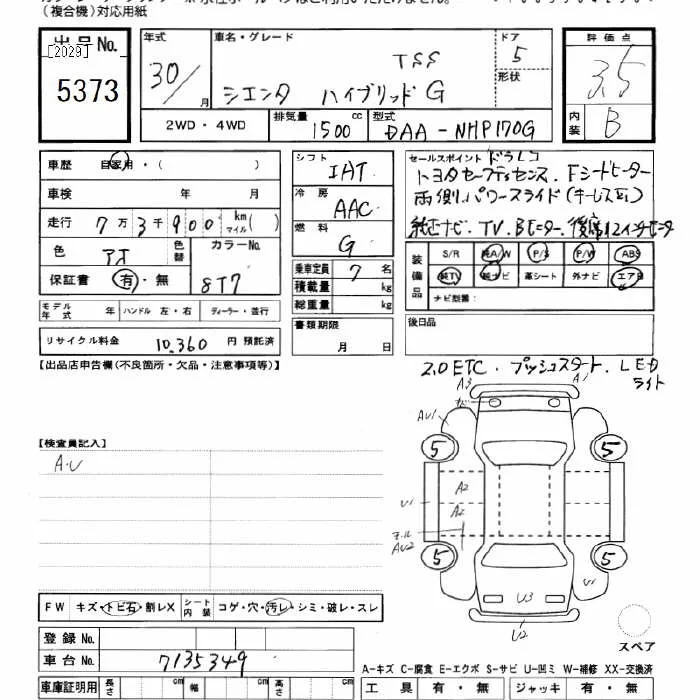 (複合機)対応用紙
出品No. [2029] 5373
年式 30/ 月
車名・グレード TSS
シエンタ ハイブリッド G
ドア 5
形状
評価点 3.5
内装 B
2WD・4WD 排気量 1500 cc 型式 DAA-NHP170G
車歴 自家用・( )
車検 年 月
走行 7万3千900 km マイル( )
色 アオ 色替 カラーNo. 8T7
保証書 有・無
シフト IAT
冷房 AAC
燃料 G
乗車定員 7 名
積載量 kg
総重量 kg
セールスポイント ドラレコ
トヨタセーフティセンス. Fシートヒーター
両側パワースライド(キーレス
純正ナビ. TV. Bモニター. 後席12インチモニタ
装備品 S/R 純A/W P/S P/W ABS
純TV 純ナビ 革シート 外ナビ エアB
ナビ型番:
モデル年式 年 ハンドル 左・右 ディーラー・並行
書類期限 月 日
後日品
リサイクル料金 10,360 円 預託済
【出品店申告欄(不良箇所・欠品・注意事項等)】
2.0ETC. プッシュスタート. LED
ライト
A3 A1
AU1
5 5
U1 A2
A2
AU2
5 5
U3
U2
スペア
【検査員記入】
A・U
FW キズ・トビ石・割レX シート内装 コゲ・穴・汚レ・シミ・破レ・スレ
登録No.
車台No. 7135349
A-キズ C-腐食 E-エクボ S-サビ U-凹ミ W-補修 XX-交換済
車庫証明用 長さ cm 幅 cm 高さ cm
工具 有・無 ジャッキ 有・無